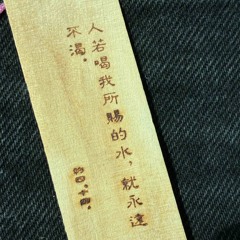 人若喝我所賜的水，就永遠
不渴。
約四．十四．